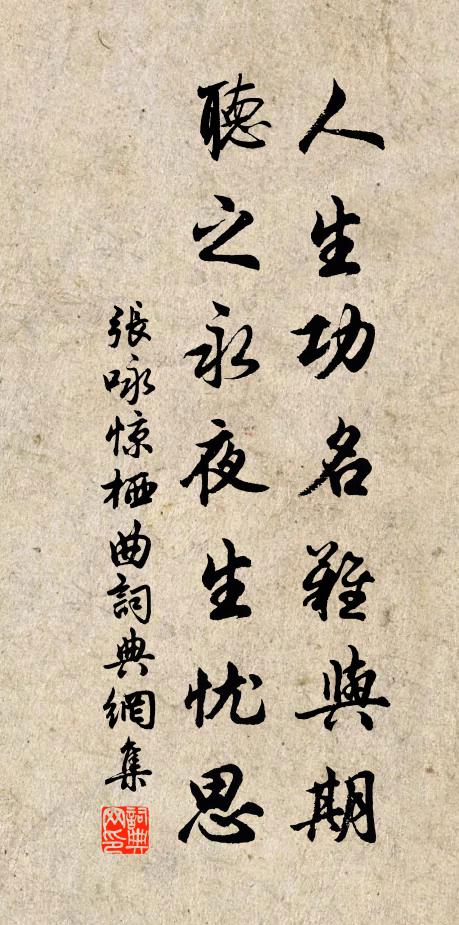 人生功名難與期
聽之永夜生忧思
張咏惊栖曲詞典網集
詞典网印